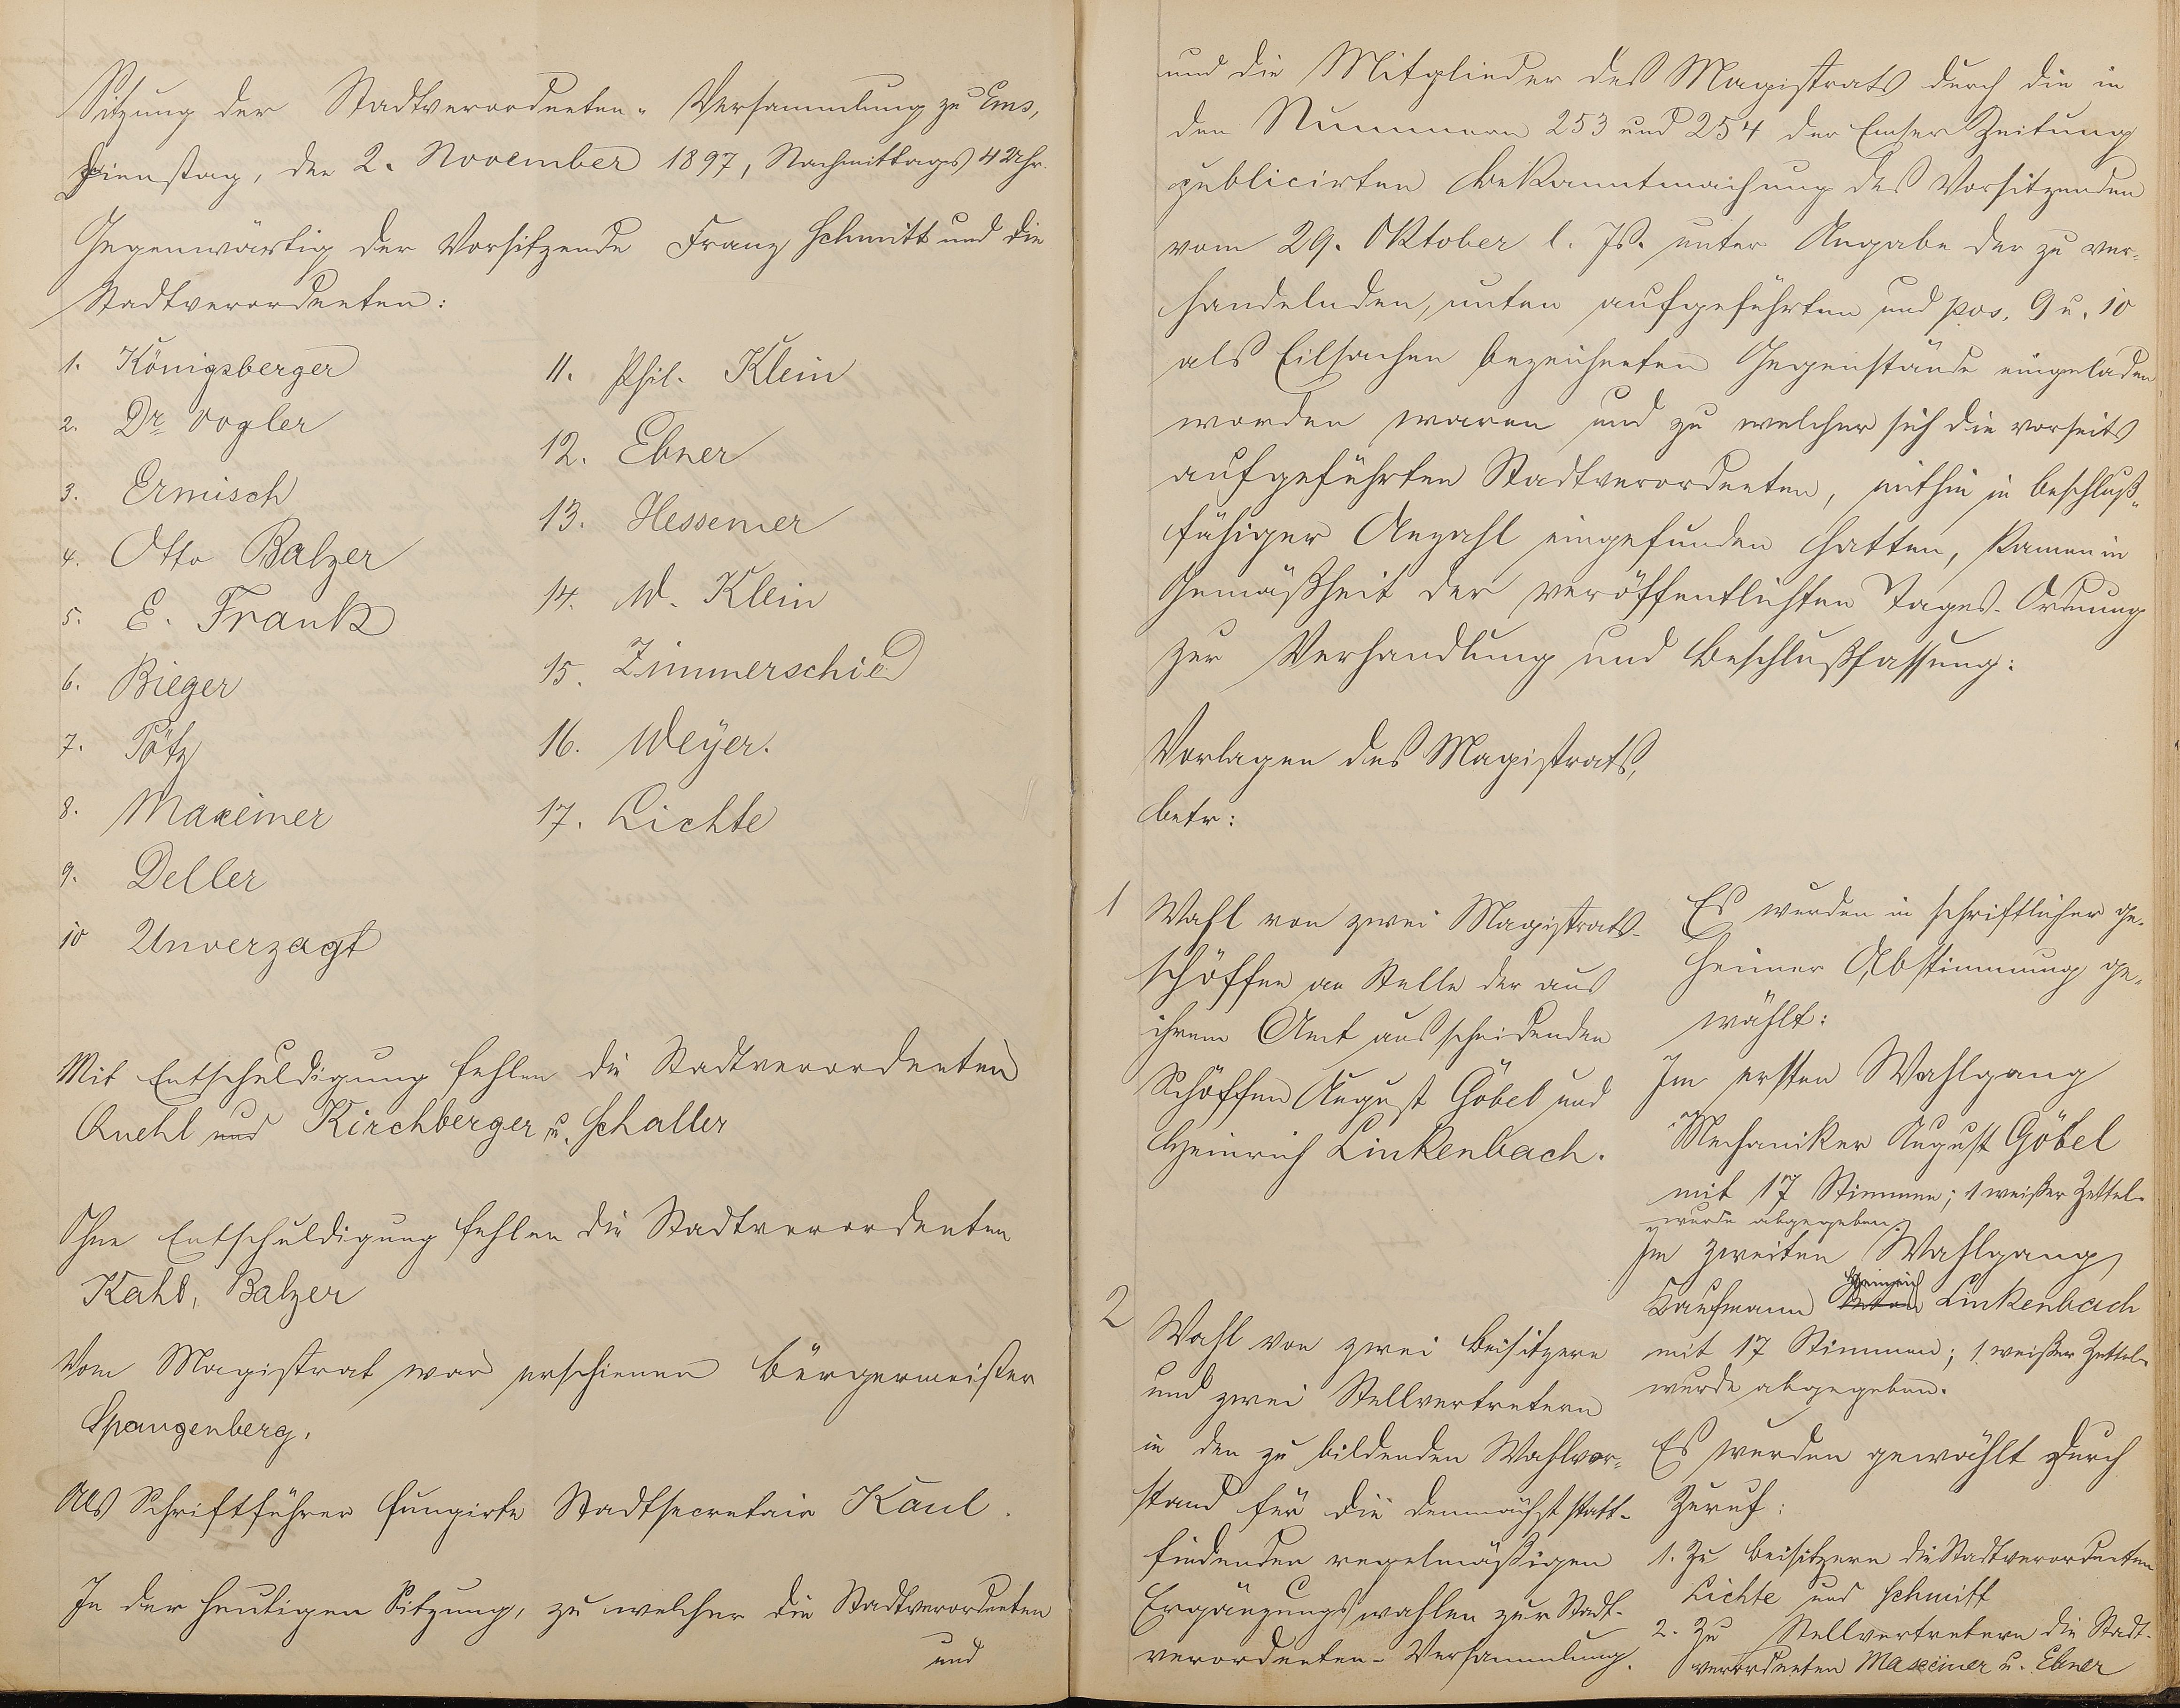 Sitzung der Stadtverordneten-Versammlung zu Ems,
Dienstag, den 2. November 1897, Nachmittags 4 Uhr.
Gegenwärtig der Vorsitzende Franz Schmitt und die
Stadtverordneten:
1. Königsberger
2. Dr. Vogler
3. Ermisch
4. Otto Balzer
5. E. Frank
6. Bieger
7. Pötz
8. Maxeiner
9. Deller
10 Unverzagt
11. Phil. Klein
12. Ebner
13. Hessemer
14. W. Klein
15. Zimmerschied
16. Weyer.
17. Lichte
Mit Entschuldigung fehlen die Stadtverordneten
und Kirchberger u. Schaller
Ohne Entschuldigung fehlen die Stadtverordneten
Balzer
Vom Magistrat war erschienen Bürgermeister
Spangenberg.
Als Schriftführer fungirte Stadtsecretair Kaul.
In der heutigen Sitzung, zu welcher die Stadtverordneten
und
und die Mitglieder des Magistrats durch die in
den Nummern 253 und 254 der Emser Zeitung
publicirten Bekanntmachung des Vorsitzenden
vom 29. Oktober l. Js. unter Angabe der zu ver-
handelnden, unten aufgeführten und pos. 9 u. 10
als Eilsachen bezeichneten Gegenstände eingeladen
worden waren und zu welcher sich die vorseits
aufgeführten Stadtverordneten, mithin in beschluß-
fähiger Anzahl eingefunden hatten, kamen in
Gemäßheit der veröffentlichten Tages-Ordnung
zur Verhandlung und Beschlußfassung:
Vorlagen des Magistrats,
betr:
1 Wahl von zwei Magistrats-
schöffen an Stelle der aus
ihrem Amt ausscheidenden
Schöffen August Göbel und
Heinrich Linkenbach.
Es wurden in schriftlicher ge-
heimer Abstimmung ge-
wählt:
Im ersten Wahlgang
Mechaniker August Göbel
mit 17 Stimmen; 1 weißer Zettel
wurde abgegeben.
Im zweiten Wahlgang
Kaufmann Heinrich Linkenbach
mit 17 Stimmen; 1 weißer Zettel
wurde abgegeben.
2 Wahl von zwei Beisitzern
und zwei Stellvertretern
in den zu bildenden Wahlvor-
stand für die demnächst statt-
findenden regelmäßigen
Ergänzungswahlen zur Stadt-
verordneten-Versammlung.
Es wurden gewählt durch
Zuruf:
1. Zu Beisitzern die Stadtverordneten
Lichte und Schmitt
2. Zu Stellvertretern die Stadt-
verordneten Maxeiner u. Ebner